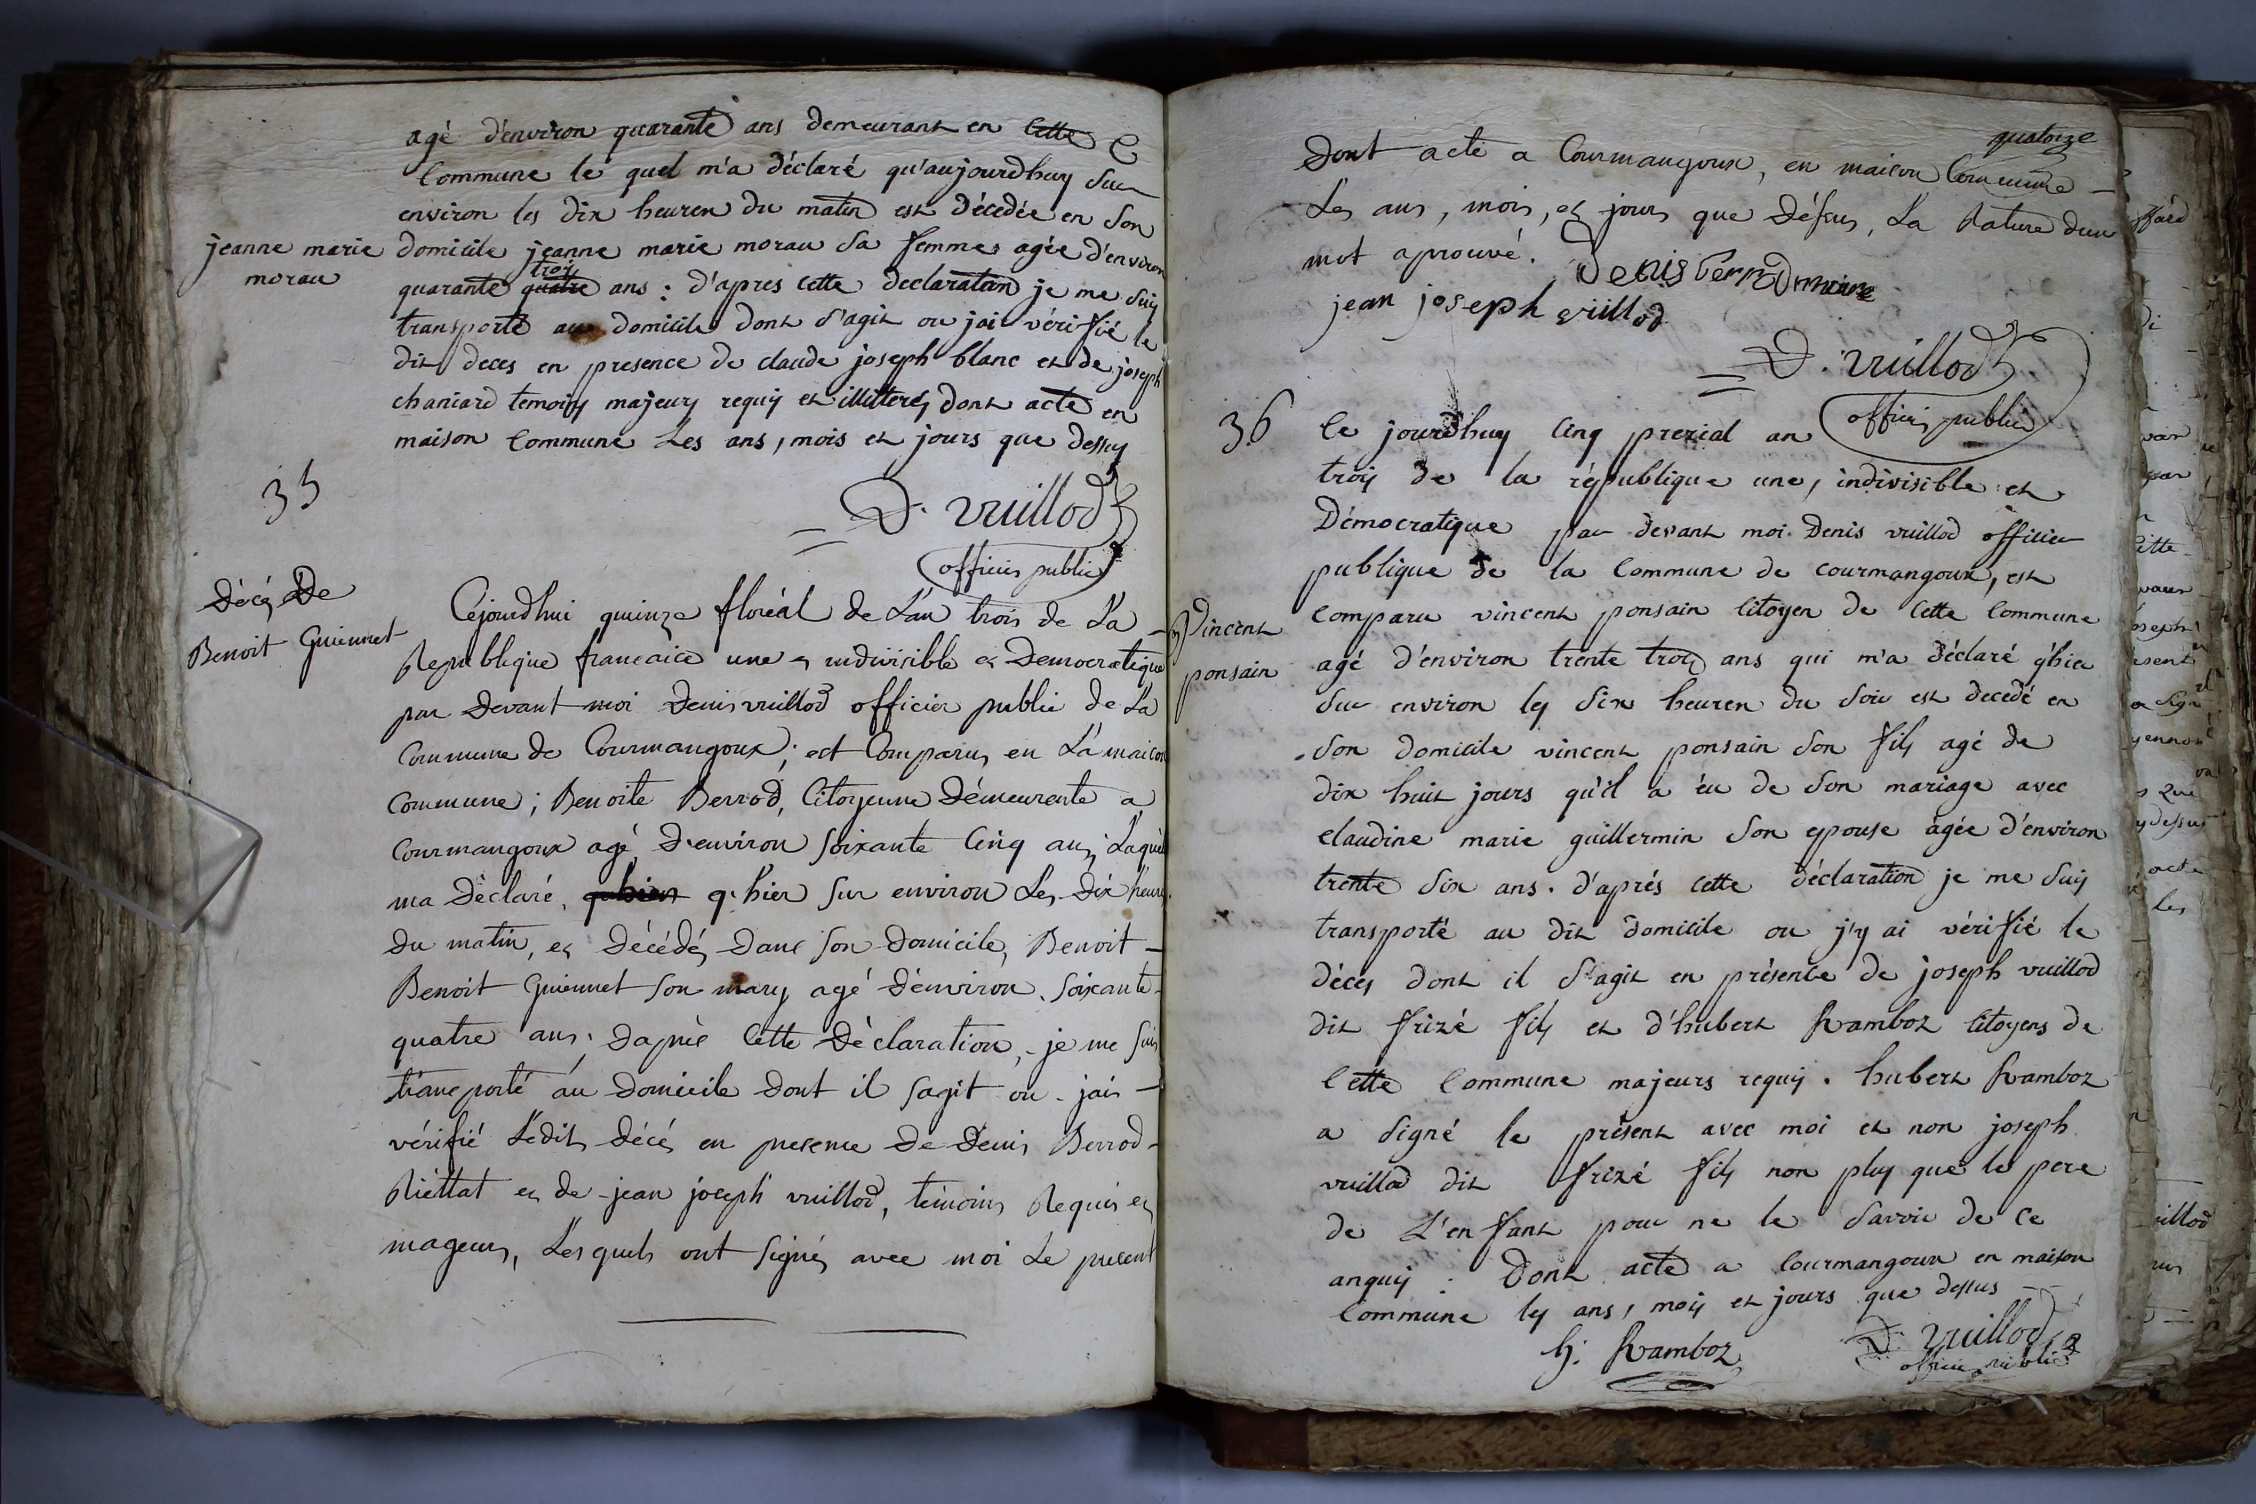 agé d'environ quarante ans demeurant en cette
commune le quel m'a déclaré qu'aujourdhuy sur
environ les dix heures du matin est décedée en son
jeanne marie
morau
domicile jeanne marie morau sa femme agée d'environ
trois
quarante quatre ans : d'apres cette declaration je me suis
transporté au domicile dont s'agit ou jai vérifié le
dit deces en presence de claude joseph blanc et de joseph
chaniard temoins majeurs requis et illitterés dont acte en
maison commune les ans, mois et jours que dessus
35
D. vuillod
officier public
décés De
Benoit Guiennet
Cejourdhui quinze floréal de L'an trois de La
Republique francaice une et indivisible et Democratique
par Devant moi Denis vuillod officier public de La
Commune de Courmangoux ; est Comparus en La maison
commune ; Benoite Berrod, Citoyenne Démeurente a
Courmangoux agé D'environ soixante Cinq ans, Laquel
ma Déclaré, q. hier sur environ Les Dix heure
Du matin, et Décédés Dans son Domicile, Benoit
Benoit Guiennet son mary agé D'environ soixante
quatre ans ; Dapriè Cette Déclaration, je me suis
transporté au Domicile Dont il sagit ou jais
vérifié Ledit Décés en presence De Denis Berrod
Riéttat et de jean joseph vuillod, témoins Requis et
mageurs, Lesquels ont signés avec moi Le present
quatorze
Dont acte a Courmangoux, en maison Commune
Les ans, mois, et jours que Déssus, La Rature dun
mot aprouvé.
Denis Berrod
jean joseph vuillod
D. vuillod
officier public
36
Ce jourdhuy cinq prerial an
trois de la république une, indivisible et
Démocratique par devant moi Denis vuillod officier
publique de la commune de courmangoux, est
Vincent
ponsain
comparu vincent ponsain citoyen de cette commune
agé d'environ trente trois ans qui m'a déclaré q'hier
sur environ les six heures du soir est decedé en
son domicile vincent ponsain son fils agé de
dix huit jours qu'il a éu de son mariage avec
claudine marie guillermin son epouse agée d'environ
trente six ans. d'aprés cette déclaration je me suis
transporté au dit domicile ou j'y ai vérifié le
décés dont il s'agit en présence de joseph vuillod
dit frizé fils et d'hubert Ramboz citoyens de
cette commune majeurs requis. hubert Ramboz
a signé le présent avec moi et non joseph
vuillod dit frizé fils non plus que le pere
de L'enfant pour ne le savoir de ce
anquis : Dont acte a courmangoux en maison
commune les ans, mois et jours que dessus
h. Ramboz
D. Vuillod
officier public